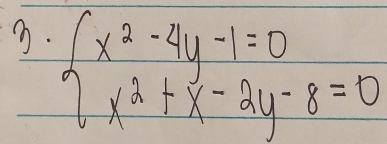 3. { x² - 4y - 1 = 0
x² + x - 2y - 8 = 0